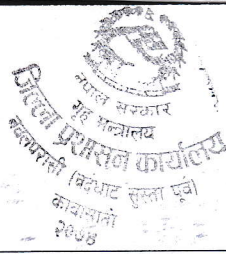 नेपाल सरकार
गृह मन्त्रालय
जिल्ला प्रशासन कार्यालय
नवलपरासी
(बर्दघाट सुस्ता पूर्व)
कावासोती
२०७४